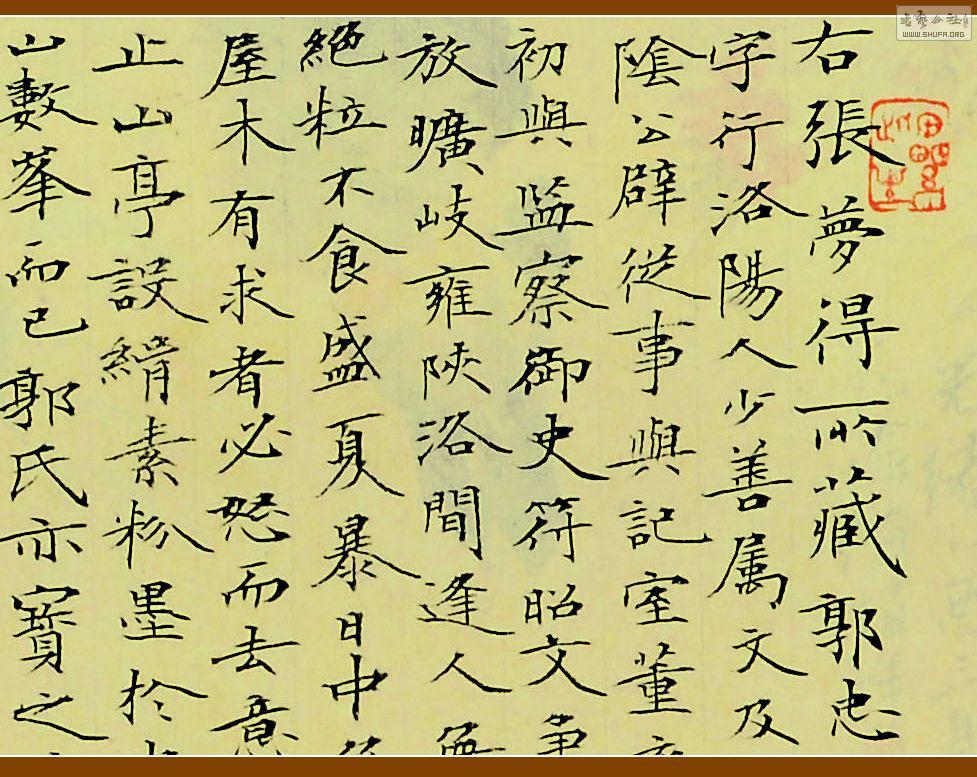 右張夢得所藏郭忠
字行洛陽人少善属文及
陰公辟從事與記室董
初與監察御史符昭文爭
放曠岐雍陝洛間逢人無
絕粒不食盛夏暴日中
屋木有求者必怒而去意
止山亭設絹素粉墨於
山數峯而已郭氏亦寶之
WWW.SHUFA.ORG